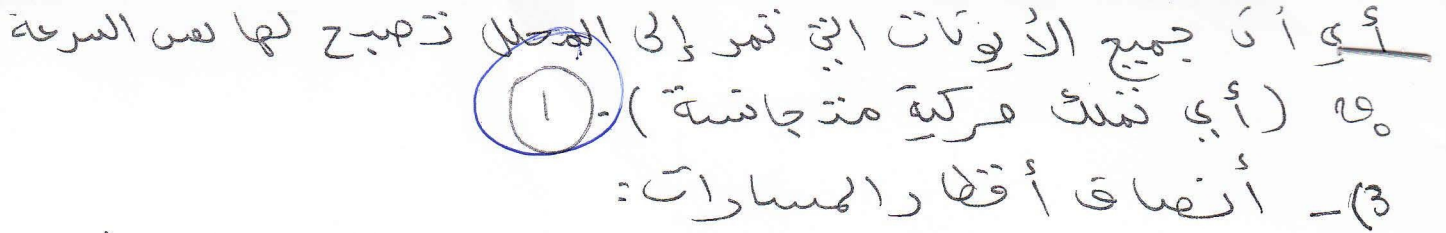 أي أن جميع الأيونات التي تمر إلى المحلل تصبح لها نفس السرعة
v₀ (أي تملك حركية متجانسة). 1
3)- أنصاف أقطار المسارات: